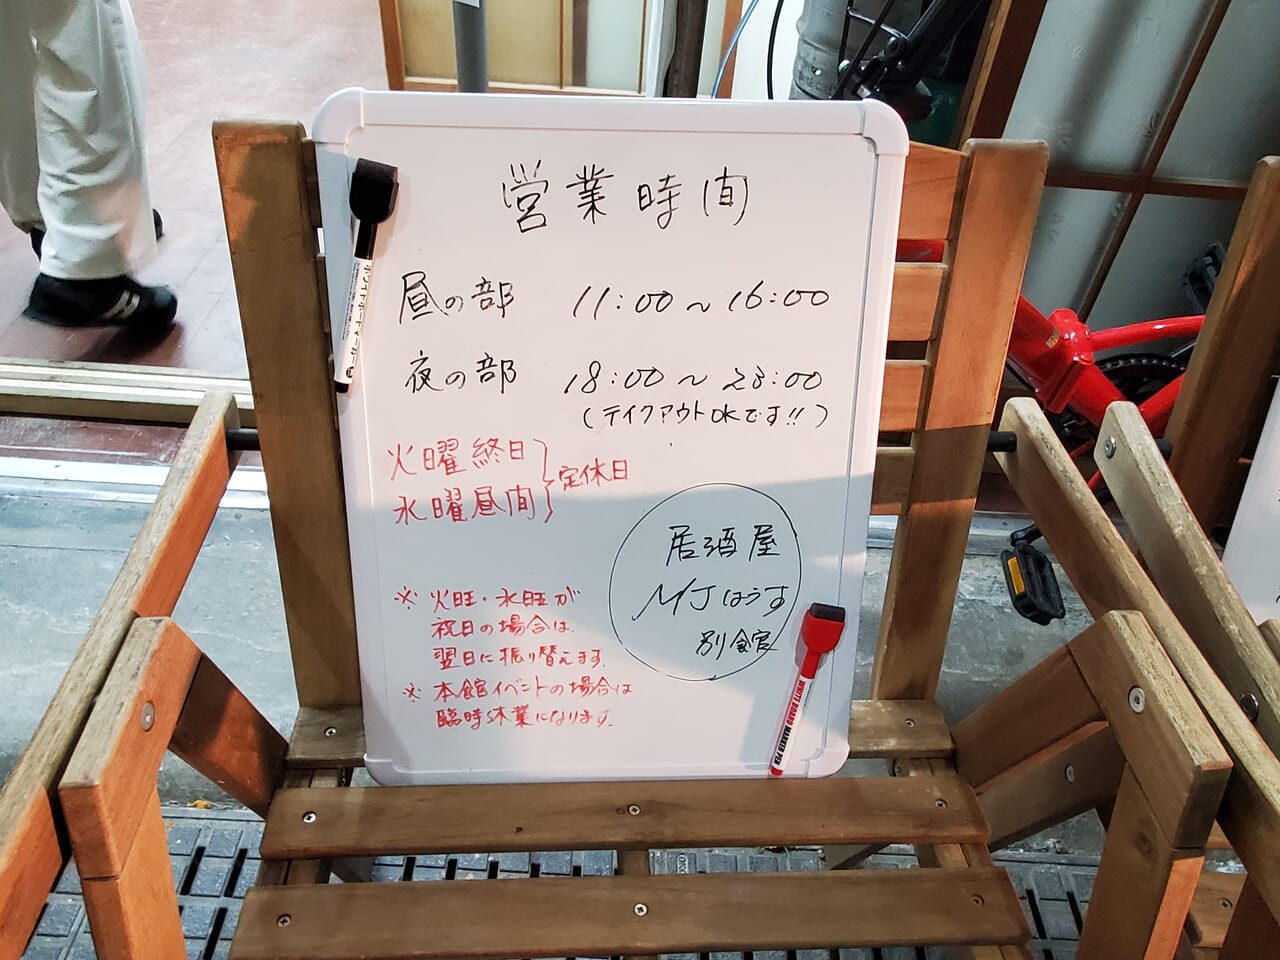 営業時間
昼の部 11:00〜16:00
夜の部 18:00〜23:00
(テイクアウトOKです!!)
火曜終日
水曜昼間
定休日
居酒屋
MJはうす
別館
※火旺・水旺が
祝日の場合は
翌日に振り替えます。
※本館イベントの場合は
臨時休業になります。
WHITE BOARD MARKER PEN